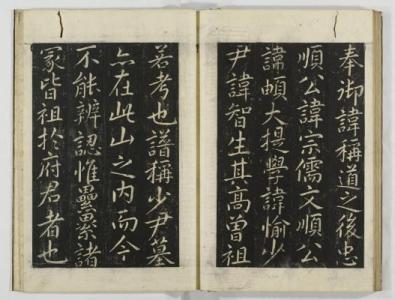 奉御諱稱道之後忠
順公諱宗儒文順公
諱頓大提學諱愉少
尹諱智生其高曾祖
若考也譜稱少尹墓
亦在此山之內而今
不能辨認惟纍纍諸
冢皆祖於府君者也